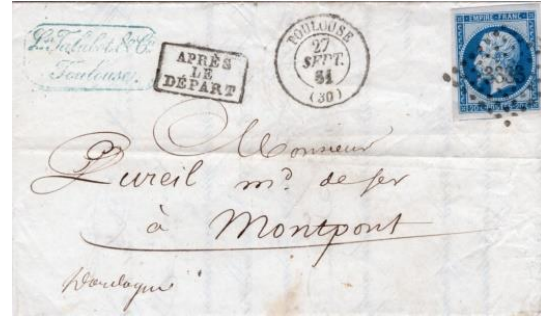 Toulouse
APRÈS
LE
DÉPART
TOULOUSE
27
SEPT.
61
(30)
EMPIRE FRANC.
Monsieur
Pureil md. de fer
à Montpont
Dordogne